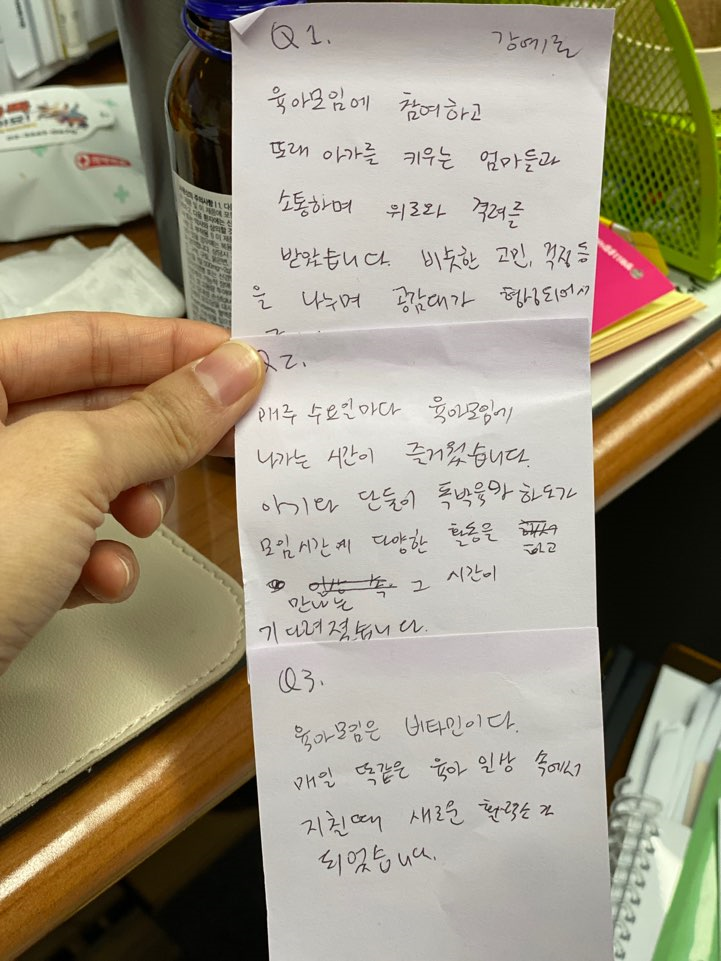 Q1. 강예른
육아모임에 참여하고
또래 아가를 키우는 엄마들과
소통하며 위로와 격려를
받았습니다. 비슷한 고민, 걱정등
을 나누며 공감대가 형성되어서
Q2.
매주 수요일마다 육아모임에
나가는 시간이 즐거웠습니다.
아기와 단둘이 독박육아 하다가
모임시간에 다양한 활동을 하고
만나는 그 시간이
기다려졌습니다.
Q3.
육아모임은 비타민이다.
매일 똑같은 육아 일상 속에서
지칠때 새로운 활력소가
되었습니다.